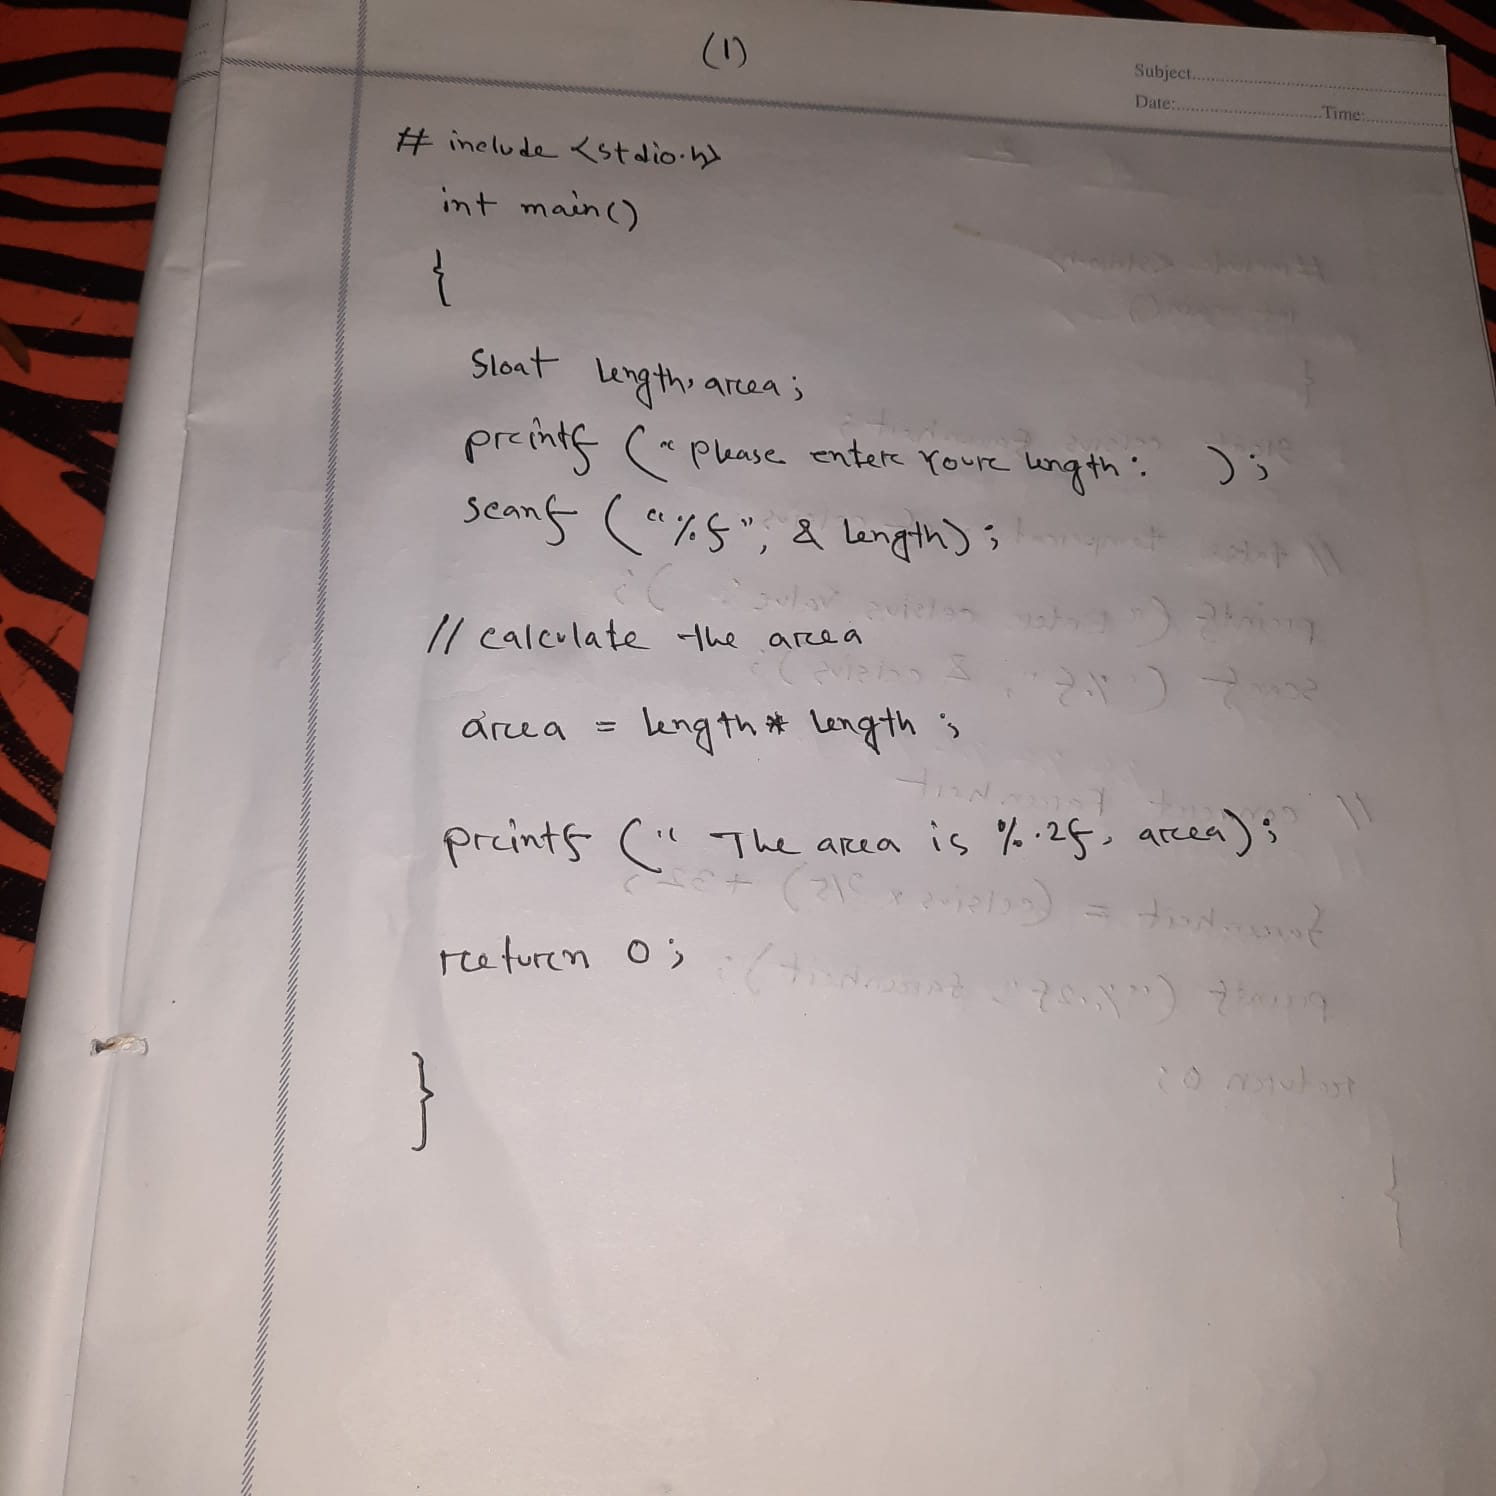 (1)
Subject
Date: Time:
# include <stdio.h>
int main()
{
float length, area;
printf (" please enter Your length: );
scanf ("%f", & length);
// calculate the area
area = length * length ;
printf (" The area is %.2f, area);
return 0;
}